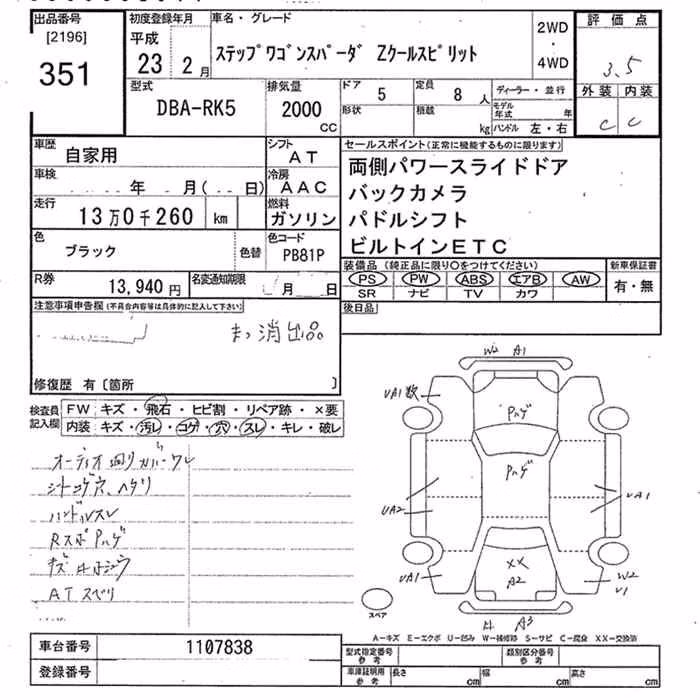 出品番号
[2196]
351
初度登録年月
平成
23 2 月
車名・グレード
ステップワゴンスパーダ Zクールスピリット
2WD
・
4WD
評価点
3.5
外装 内装
C C
型式
DBA-RK5
排気量
2000
CC
ドア
5
形状
定員
8 人
積載
kg
ディーラー・並行
モデル年式 年
ハンドル 左・右
車歴
自家用
車検
年 月( 日)
走行
13万0千260 km
色
ブラック
色替
R券
13,940 円
名変通知期限
月 日
シフト
AT
冷房
AAC
燃料
ガソリン
色コード
PB81P
セールスポイント(正常に機能するものに限ります)
両側パワースライドドア
バックカメラ
パドルシフト
ビルトインETC
装備品(純正品に限り○をつけてください)
PS PW ABS エアB AW
SR ナビ TV カワ
新車保証書
有・無
後日品
注意事項申告欄(不具合内容等は具体的に記入して下さい)
まっ消出品
修復歴 有〔箇所 〕
検査員記入欄
FW キズ・飛石・ヒビ割・リペア跡・×要
内装 キズ・汚レ・コゲ・穴・スレ・キレ・破レ
オーディオ廻りカバーワレ
シートコゲ穴、ヘタリ
ハンドルスレ
RスポPハゲ
ATスベリ
W2 A1
UA1数
Pハゲ
Pハゲ
UA2
UA1
XX
A2
UA1
W2
U1
A3
スペア
A-キズ E-エクボ U-凹み W-補修跡 S-サビ C-腐食 XX-交換済
車台番号
1107838
登録番号
型式指定番号
参考
類別区分番号
参考
車庫証明用
参考
長さ cm
幅 cm
高さ cm